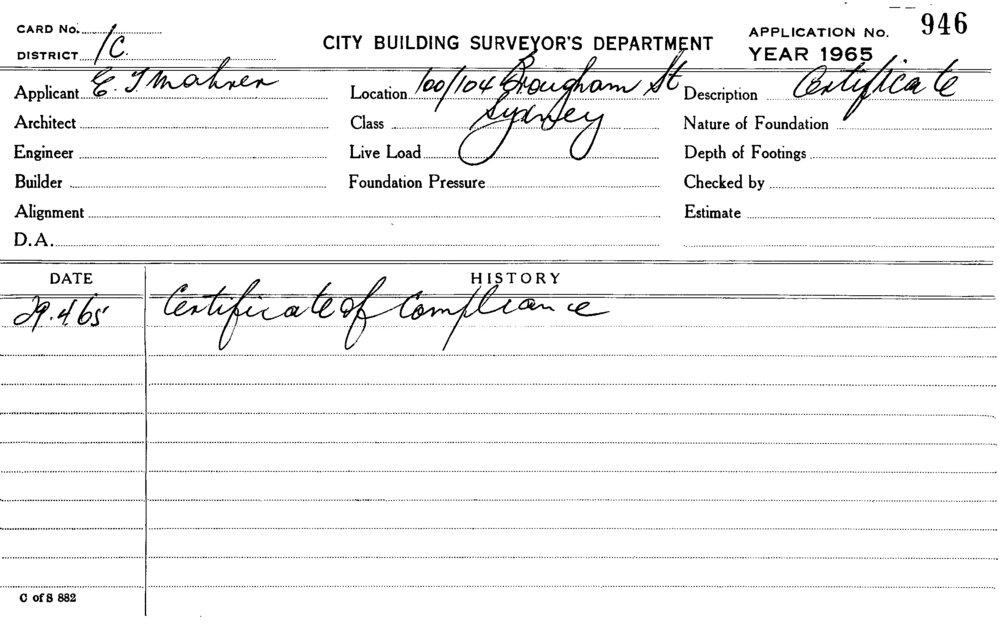 CARD No. APPLICATION No. 946
DISTRICT 1C. CITY BUILDING SURVEYOR'S DEPARTMENT YEAR 1965
Applicant E. J Mahrer Location 100/104 Brougham St Description Certificate
Architect Class Sydney Nature of Foundation
Engineer Live Load Depth of Footings
Builder Foundation Pressure Checked by
Alignment Estimate
D.A.
DATE HISTORY
29.4.65 Certificate of Compliance
C of S 882